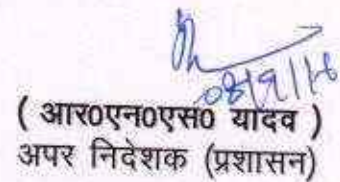 08/9/16
( आर0एन0एस0 यादव )
अपर निदेशक (प्रशासन)